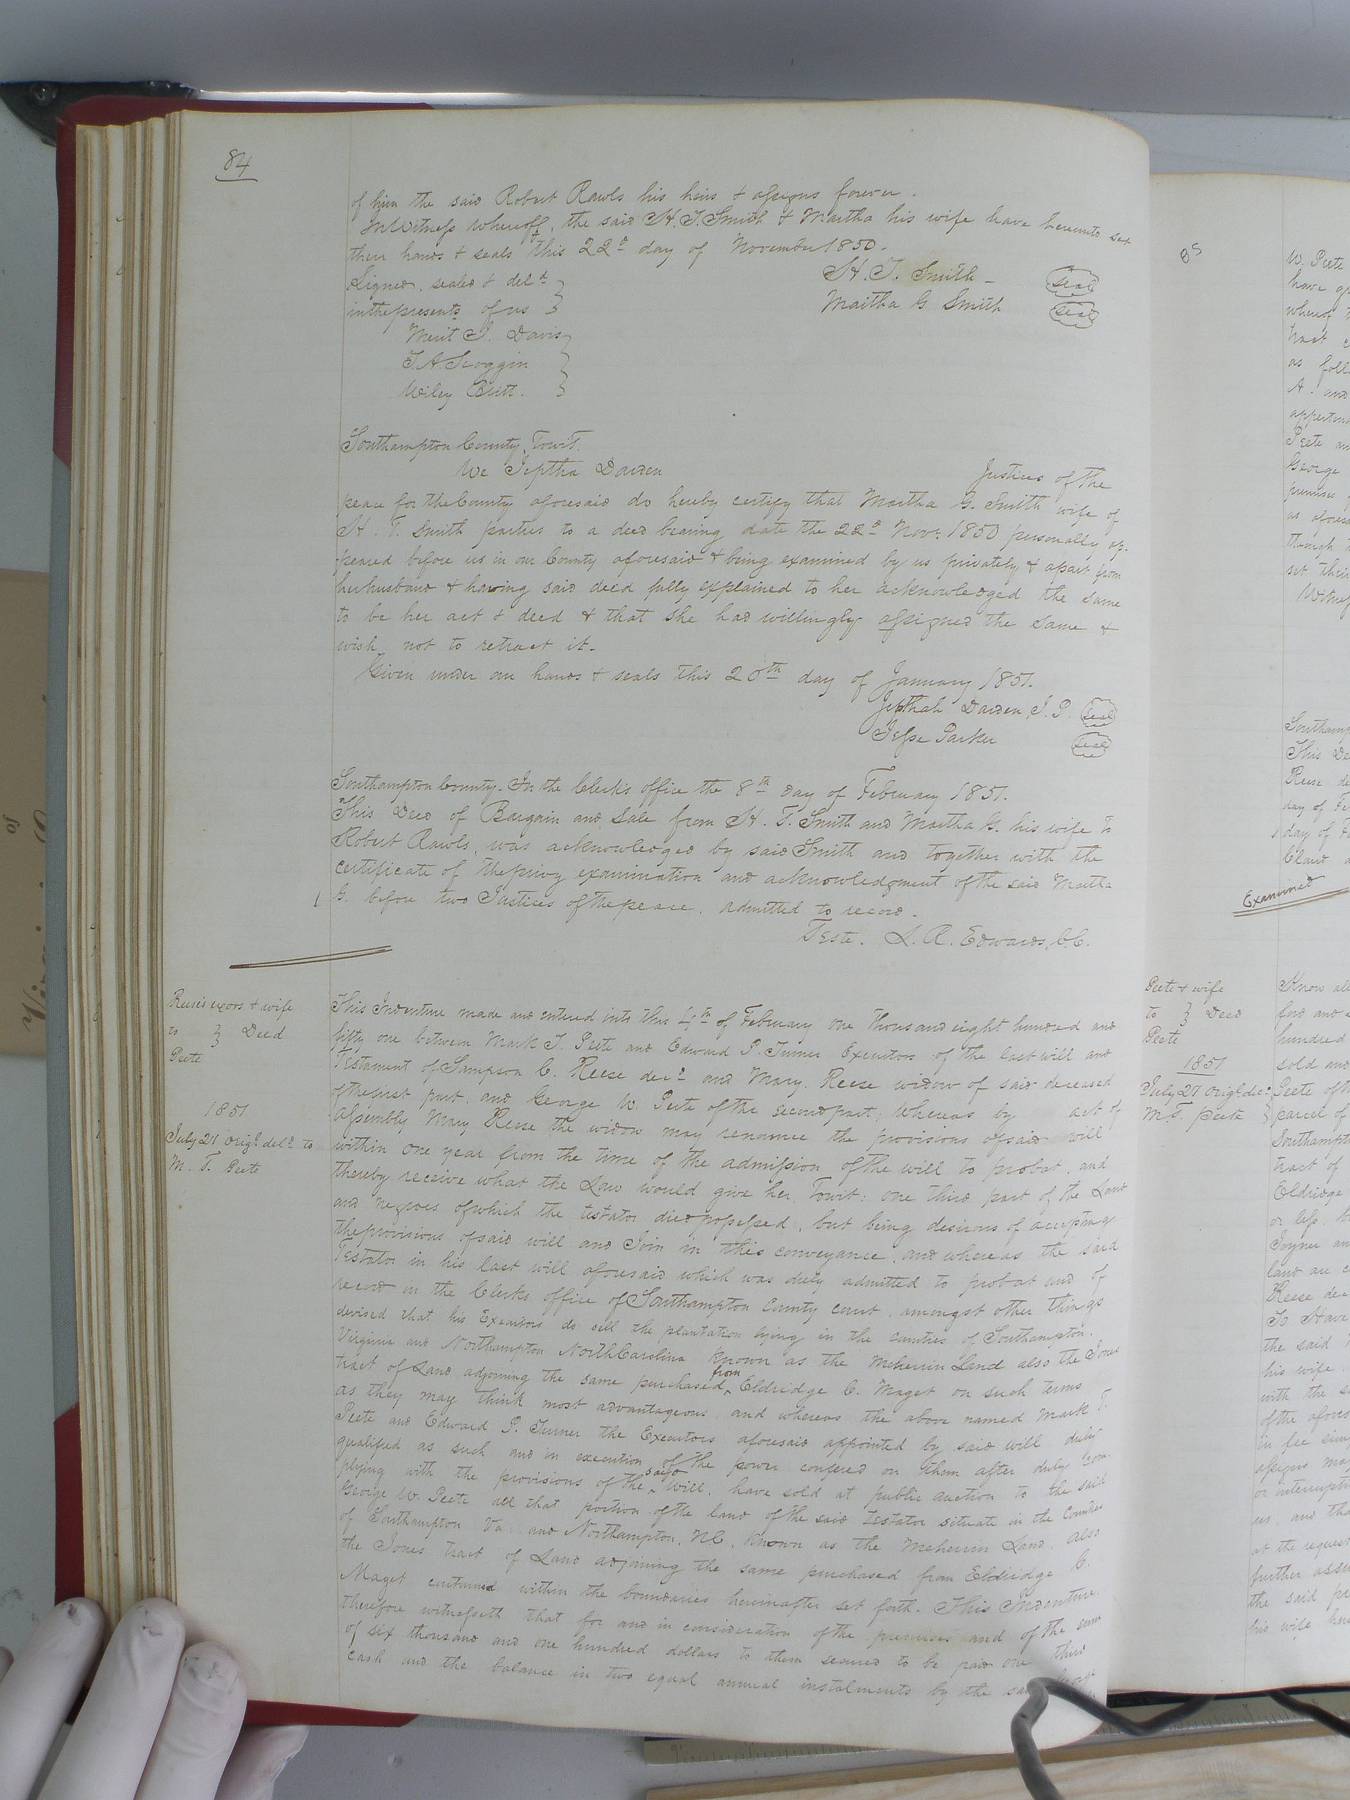 84
of him the said Robert Rawls his heirs & assigns forever.
In Witness whereoff, the said H. T. Smith & Martha his wife have hereunto set
their hands & seals this 22d day of November 1850.
Signed, sealed & deld
in the presents of us
H. T. Smith Seal
Martha G Smith Seal
Merit I. Davis
T A Scoggin
Wiley Britt.
Southampton County, Towit.
We Jeptha Darden Justices of the
peace for the County aforesaid do hereby certify that Martha G. Smith wife of
H. T. Smith parties to a deed bearing date the 22d Nov: 1850 personally ap-
peared before us in our County aforesaid & being examined by us privately & apart from
her husband & having said deed fully explained to her acknowledged the same
to be her act & deed & that she had willingly assigned the same &
wish not to retract it.
Given under our hands & seals this 20th day of January 1851.
Jepthah Darden, J. P. Seal
Jesse Parker Seal
Southampton County. In the Clerk's office the 8th day of February 1851.
This Deed of Bargain and Sale from H. T. Smith and Martha G. his wife to
Robert Rawls, was acknowledged by said Smith and together with the
certificate of the privy examination and acknowledgment of the said Martha
G. before two Justices of the peace, admitted to record.
Teste. L. R. Edwards, C.C.
Reese's exors & wife
to } Deed
Peete
1851
July 21 Origl. deld. to
M. T. Peete
This Indenture made and entered into this 4th of February one thousand eight hundred and
fifty one between Mark T. Peete and Edward P. Turner Executors of the last will and
Testament of Sampson C. Reese decd and Mary Reese widow of said deceased
of the first part, and George W. Peete of the second part; Whereas by act of
Assembly Mary Reese the widow may renounce the provisions of said will
within one year from the time of the admission of the will to probat, and
thereby receive what the Law would give her, Towit: one third part of the Land
and negroes of which the testator died possessed, but being desirous of accepting
the provisions of said will and Join in this conveyance, and whereas the said
Testator in his last will aforesaid which was duly admitted to probat and of
record in the Clerks office of Southampton County court, amongst other things
devised that his Executors do sell the plantation lying in the counties of Southampton,
Virginia and Northampton North Carolina known as the Meherrin Land also the Jones
tract of Land adjoining the same purchased from Eldridge C. Maget on such terms
as they may think most advantageous, and whereas the above named Mark T.
Peete and Edward P. Turner the Executors aforesaid appointed by said will duly
qualified as such and in execution of the power confered on them after duly com-
plying with the provisions of the said will, have sold at public auction to the said
George W. Peete all that portion of the land of the said Testator situate in the Counties
of Southampton Va and Northampton, N C, known as the Meherrin Land, also
the Jones tract of Land adjoining the same purchased from Eldridge C.
Maget contained within the boundaries hereinafter set forth. This Indenture
therefore witnesseth that for and in consideration of the premises and of the sum
of six thousand and one hundred dollars to them secured to be paid one third
cash and the balance in two equal annual instalments by the
85
W. Peete
Examined
Peete & wife
to } Deed
Peete
1851
July 21 Origl. del.
M. T. Peete